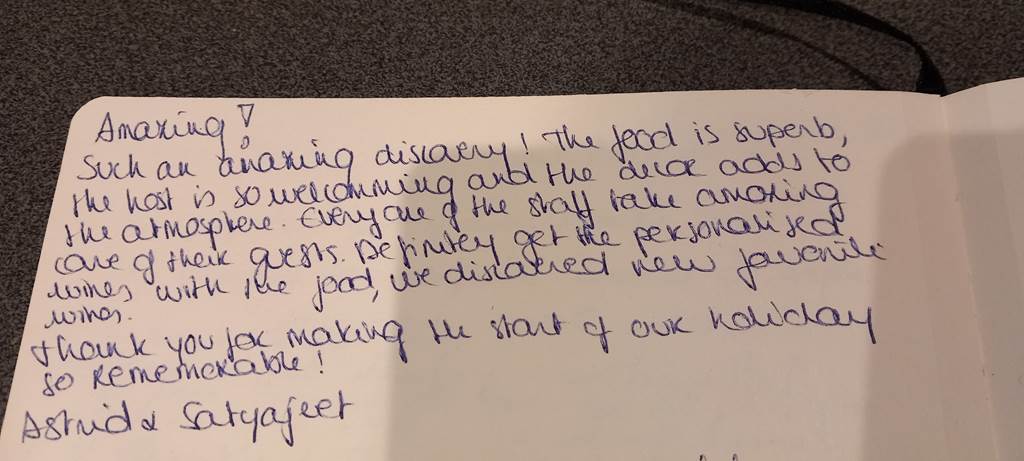 Amazing!
Such an amazing discovery! The food is superb,
the host is so welcomming and the decor adds to
the atmosphere. Everyone of the staff take amazing
care of their guests. Definitey get the personalised
wines with the food, we discovered new favorite
wines.
Thank you for making the start of our holiday
so rememerable!
Astrid & Satyajeet